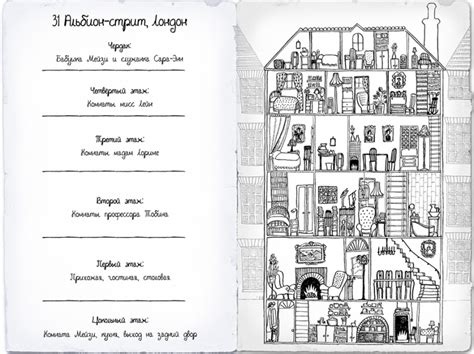 31 Альбион-стрит, Лондон
Чердак:
Бабушка Мейзи и служанка Сара-Энн
Четвертый этаж:
Комнаты мисс Лейн
Третий этаж:
Комнаты мадам Лоринс
Второй этаж:
Комнаты профессора Тобина
Первый этаж:
Прихожая, гостиная, столовая
Цокольный этаж:
Комната Мейзи, кухня, выход на задний двор